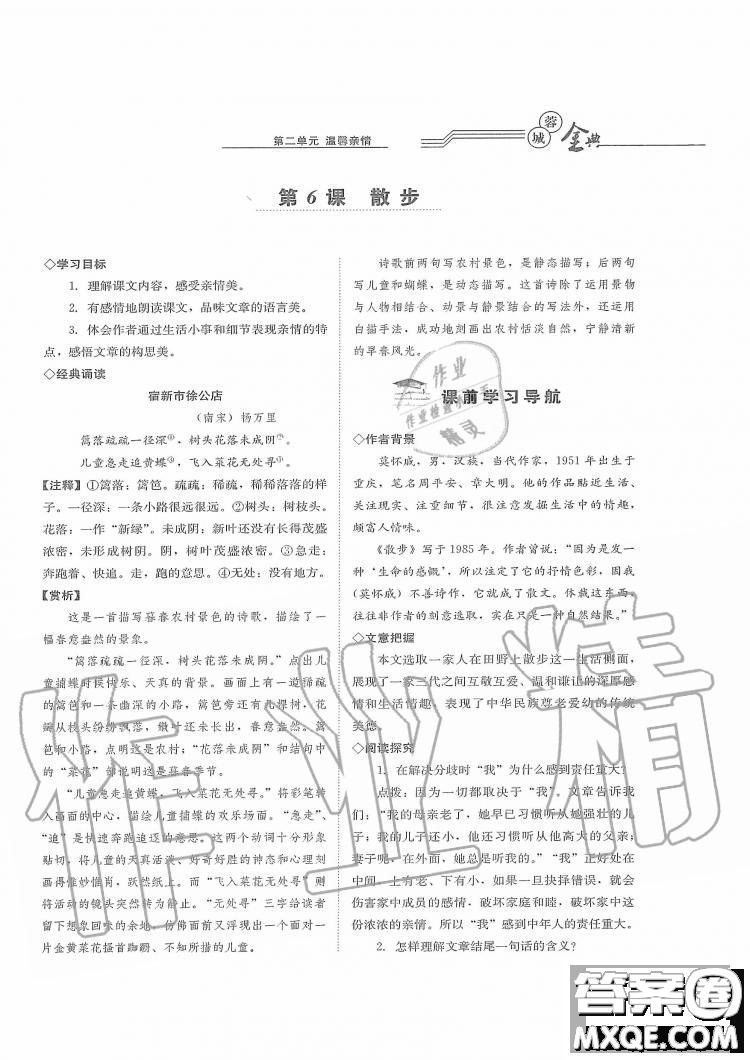 第二单元 温馨亲情
蓉城金典
第6课 散步
◇学习目标
1. 理解课文内容，感受亲情美。
2. 有感情地朗读课文，品味文章的语言美。
3. 体会作者通过生活小事和细节表现亲情的特
点，感悟文章的构思美。
◇经典诵读
宿新市徐公店
（南宋）杨万里
篱落疏疏一径深①，树头花落未成阴②。
儿童急走追黄蝶③，飞入菜花无处寻④。
【注释】①篱落：篱笆。疏疏：稀疏，稀稀落落的样
子。一径深：一条小路很远很远。②树头：树枝头。
花落：一作“新绿”。未成阴：新叶还没有长得茂盛
浓密，未形成树阴。阴，树叶茂盛浓密。③急走：
奔跑着、快追。走，跑的意思。④无处：没有地方。
【赏析】
这是一首描写暮春农村景色的诗歌，描绘了一
幅春意盎然的景象。
“篱落疏疏一径深，树头花落未成阴。”点出儿
童捕蝶时候快乐、天真的背景。画面上有一道稀疏
的篱笆和一条幽深的小路，篱笆旁还有几棵树，花
瓣从枝头纷纷飘落，嫩叶还未长出，春意盎然。篱
笆和小路，点明这是农村；“花落未成阴”和结句中
的“菜花”都说明这是暮春季节。
“儿童急走追黄蝶，飞入菜花无处寻。”将彩笔转
入画面的中心，描绘儿童捕蝶的欢乐场面。“急走”、
“追”是快速奔跑追逐的意思。这两个动词十分形象
贴切，将儿童的天真活泼、好奇好胜的神态和心理刻
画得惟妙惟肖，跃然纸上。而“飞入菜花无处寻”则
将活动的镜头突然转为静止。“无处寻”三字给读者
留下想象回味的余地，仿佛面前又浮现出一个面对一
片金黄菜花搔首踟蹰、不知所措的儿童。
诗歌前两句写农村景色，是静态描写；后两句
写儿童和蝴蝶，是动态描写。这首诗除了运用景物
与人物相结合、动景与静景结合的写法外，还运用
白描手法，成功地刻画出农村恬淡自然，宁静清新
的早春风光。
课前学习导航
◇作者背景
莫怀戚，男，汉族，当代作家，1951年出生于
重庆，笔名周平安、章大明。他的作品贴近生活、
关注现实、注重细节，很注意发掘生活中的情趣，
颇富人情味。
《散步》写于1985年。作者曾说：“因为是发自一
种‘生命的感慨’，所以注定了它的抒情色彩，因我
（莫怀戚）不善诗作，它就成了散文。休裁这东西，
往往非作者的刻意选取，实在只是一种自然结果。”
◇文意把握
本文选取一家人在田野上散步这一生活侧面，
展现了一家三代之间互敬互爱、温和谦让的深厚感
情和生活情趣，表现了中华民族尊老爱幼的传统
美德。
◇阅读探究
1. 在解决分歧时“我”为什么感到责任重大？
点拨：因为一切都取决于“我”。文章告诉我
们：“我的母亲老了，她早已习惯听从她强壮的儿
子；我的儿子还小，他还习惯听从他高大的父亲；
妻子呢，在外面，她总是听我的。”“我”正好处在
中间，上有老、下有小，如果抉择错误，就会
伤害家中成员的感情，破坏家庭和睦，破坏家中这
份浓浓的亲情。所以“我”感到中年人的责任重大。
2. 怎样理解文章结尾一句话的含义？
作业
作业检查小
精灵
作业精
答案圈
MXQE.COM